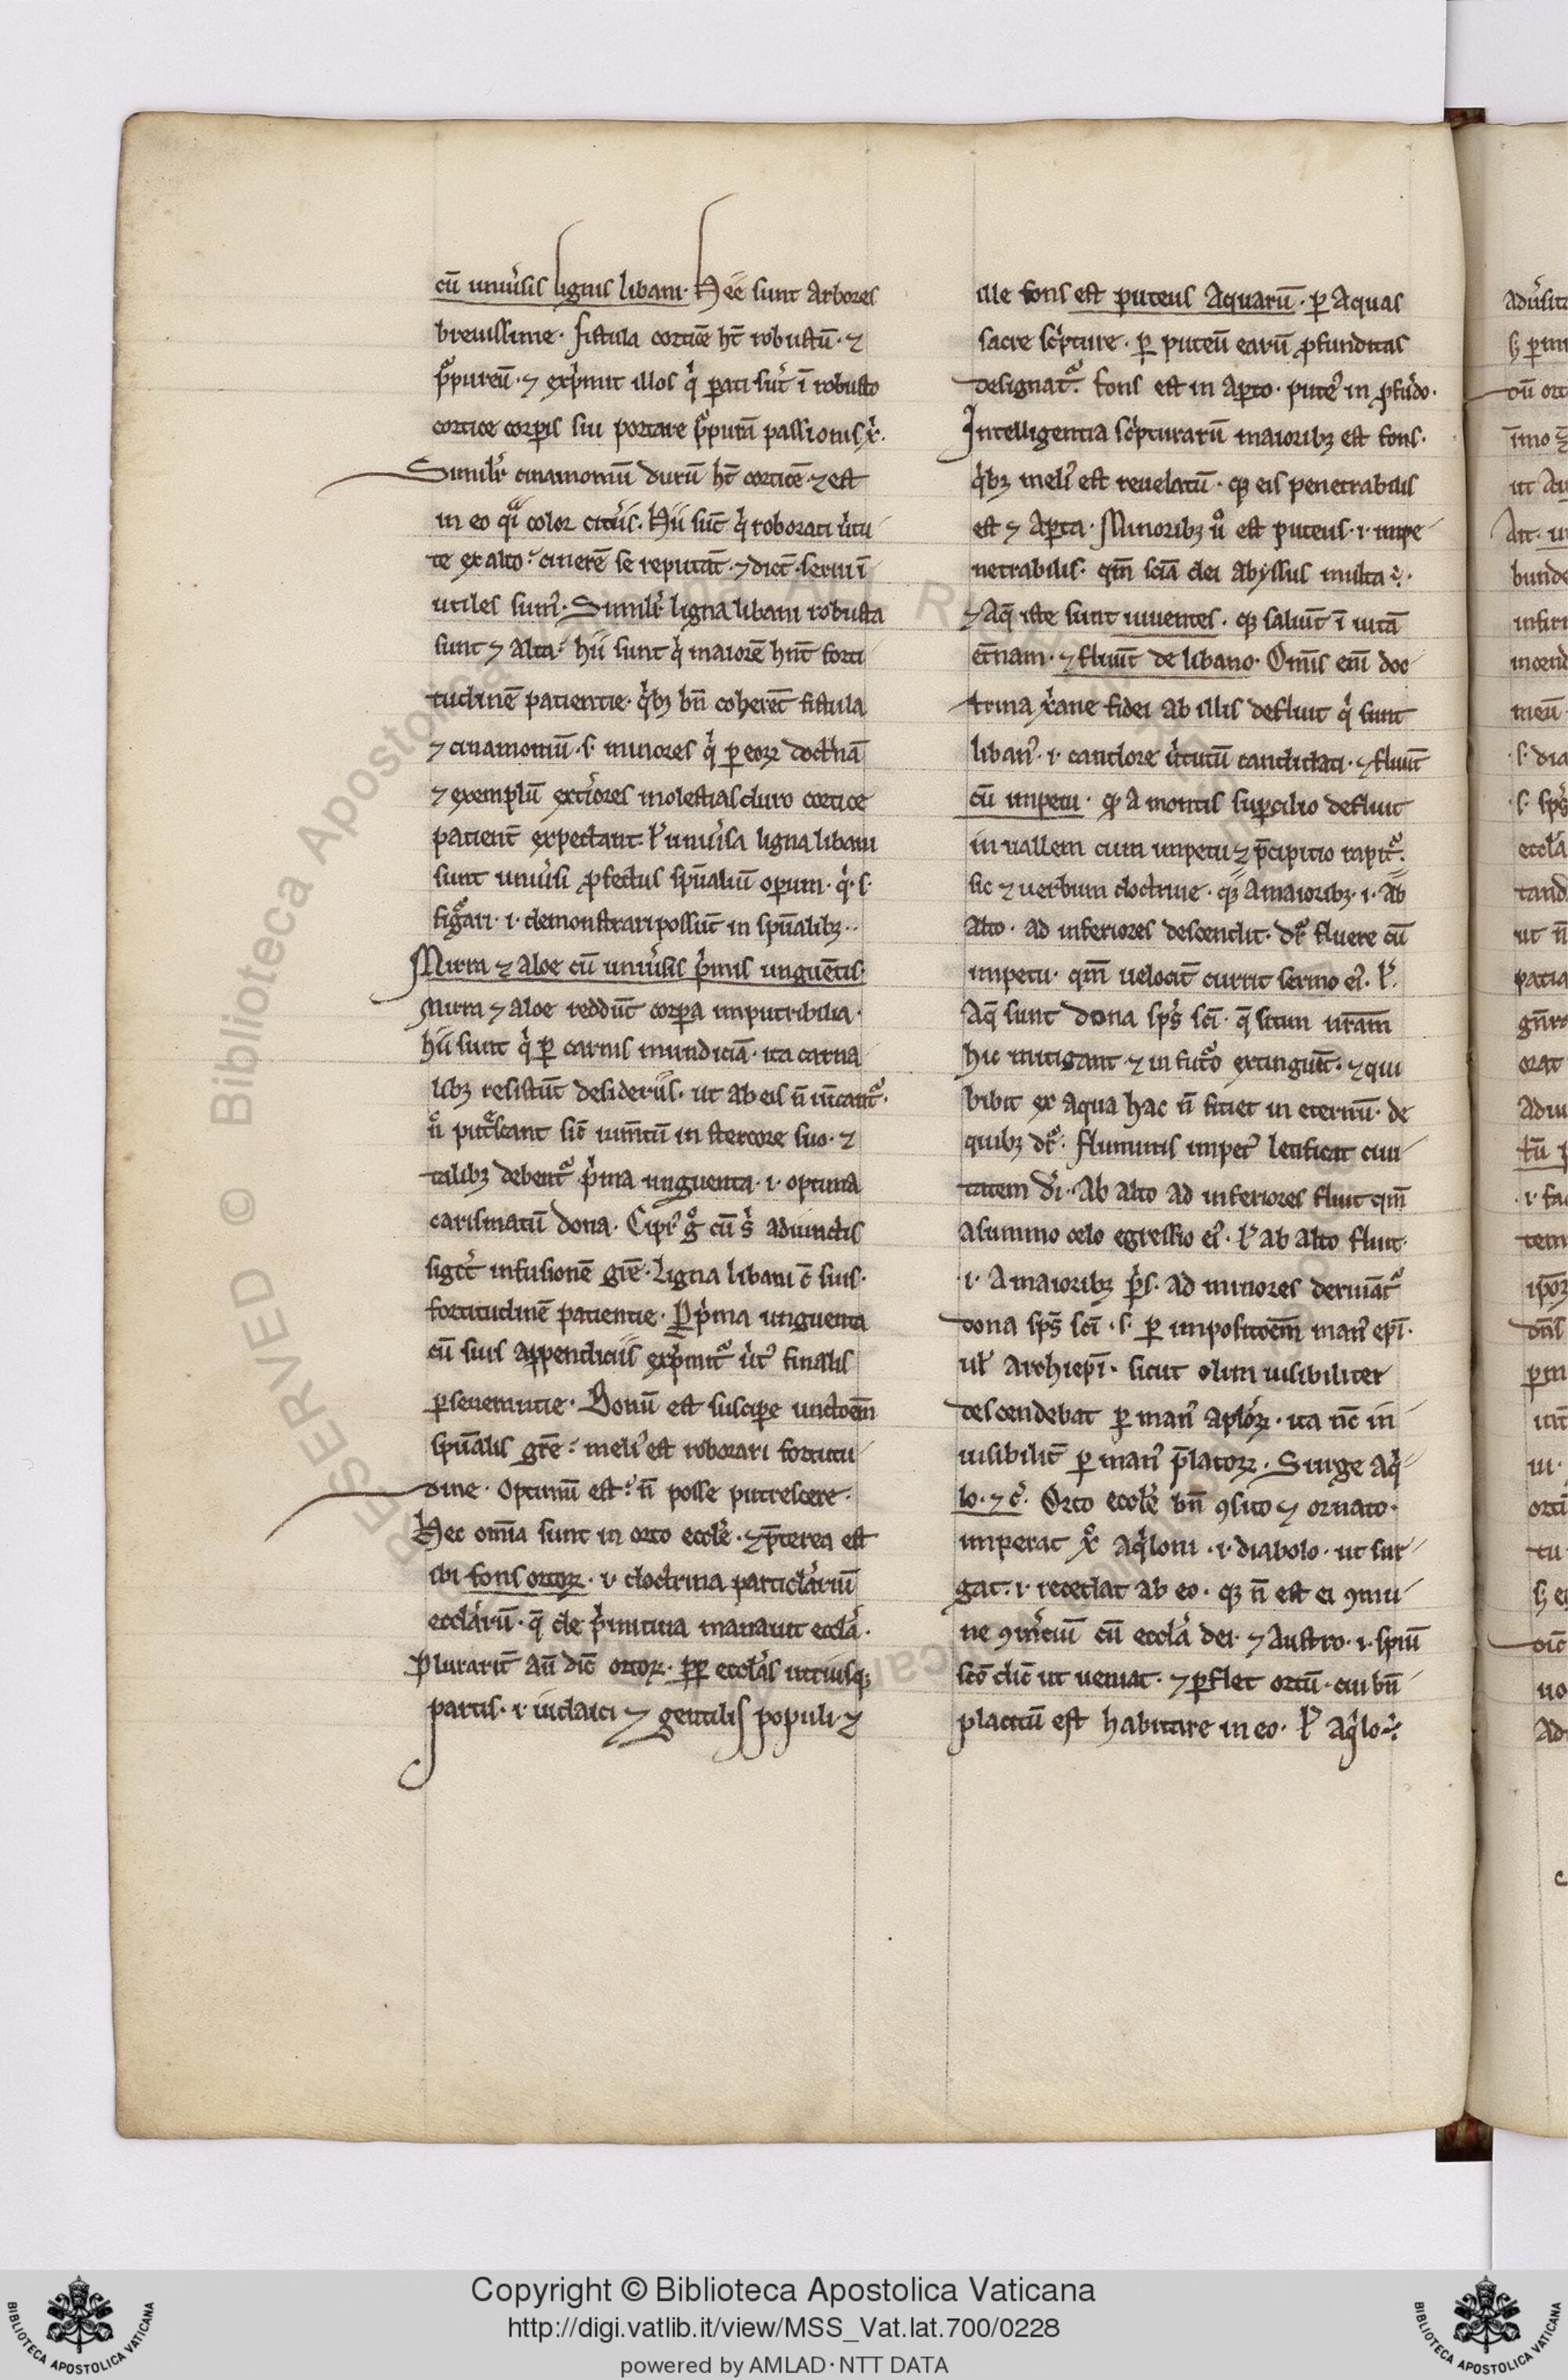 cū uniu̾sis lignis libani. Hee sunt arbores
breuissime. fistula corticē ht̄ robustū. ⁊
pᷣpureū. ⁊ exp̾mit illos q̾ pati sūt ī robusto
cortice corꝑis sui portare pᷣpurā passionis x̾.
Simil̾r cinamomū durū ht̄ corticē ⁊ est
in eo qͣi color cin̾is. Hii sūt q̾ roborati u̾tu
te ex alto. cinerē se reputāt. ⁊ dicūt. serui ī
utiles sum᾽. Simil̾r ligna libani robusta
sunt ⁊ alta. hii sunt q̾ maiorē hn̄t forti
tudinē patientie. q̾bꝫ bn̄ coherēt fistula
⁊ cinamomū. s. minores q̾ ꝑ eoꝝ doctͥnā
⁊ exemplū ext̾iores molestias duro cortice
patient̄ expectant. l̾ uniu̾sa ligna libani
sunt uniu̾si ꝓfectus sp̄ualiū operum. q̾. s.
figᷣari. i. demonstrari possūt in sp̄ualibꝫ..
Mirra ⁊ aloe cū uniu̾sis p̾mis unguētis.
Mirra ⁊ aloe reddūt corꝑa imputribilia.
hii sunt q̾ ꝑ carnis mundiciā. ita carna
libꝫ resistūt desideriis. ut ab eis n̄ uīcantᷣ.
n̊ putͤscant sic̄ ium̄tū in stercore suo. ⁊
talibꝫ debentᷣ p̾ma unguenta. i. optima
carismatū dona. Cipr᾽ g̊ cū s̾ adiunctis
infusionē gr̄e. Ligna libani c̄ suis.
fortitudinē patientie. P̾p̾ma unguenta
cū suis appendiciis exp̾mitᷣ u̾t᾽ finalis
ꝑseuerantie. Bonū est suscipe unctoēm
sp̄ualis gr̄e. meli᾽ est roborari fortitu
dine. Optimū est. n̄ posse putrescere.
Hec om̄ia sunt in orto eccl̾e. ⁊ p̄terea est
ibi fons ortoꝝ. i. doctrina particl̾ariū
eccl̾arū. q̄ de p̾mitiua manauit eccl̾a.
Plurarit̄ aū dic̄ ortoꝝ. ꝓp̄ eccl̾as utriusqꝫ
partis. i. iudaici ⁊ gentilis populi. ⁊
ille fons est puteus aquarū. ꝑ aquas
sacre sc̾pture. ꝑ puteū earū ꝓfunditas
designatᷣ. fons est in aꝑto. pute᾽ in ꝓfūdo.
Intelligentia sc̾pturarū maioribꝫ est fons.
q̾bꝫ meli᾽ est reuelatū. qꝫ eis penetrabilis
est ⁊ aꝑta. Minoribꝫ ů est puteus. i. impe
netrabilis. qm̄ sc̄ia dei abyssus multa.
⁊ aq̄ iste sunt uiuentes. qꝫ saliūt ī uitā
et̄nam. ⁊ fluūt de libano. Om̄is eni doc
trina x̾ane fidei ab illis defluit q̾ sunt
liban᾽. i. candore u̾tutū candidati. ⁊ fluūt
cū impetu. qꝫ a montis suꝑcilio defluit
in uallem cum impetu ⁊ p̄cipitio rapitᷣ.
sic ⁊ uerbum doctrine. qꝫ a maioribꝫ. i. ab
alto. ad inferiores descendit. dr̄ fluere cū
impetu. qm̄ uelocit̄ currit sermo ei᾽. l̾.
Aq̄ sunt dona sp̄s sc̄i. q̄ sitim nr̄am
hic mitigant ⁊ in futᷣo extinguūt. ⁊ qui
bibit ex aqua hac n̄ sitiet in eternū. de
quibꝫ dr̄. fluminis impet᾽ letificat ciui
tatem d̾i. Ab alto ad inferiores fluit qm̄
a summo celo egressio ei᾽. l̾ ab alto fluit.
.i. a maioribꝫ p̾s. ad minores deriuātᷣ
dona sp̄s sc̄i. s. ꝑ impositoēm man᾽ ep̄i.
ul̾ archiep̄i. sicut olim uisibiliter
descendebat ꝑ man᾽ apl̾oꝝ. ita nc̄ in
uisibilit̄ ꝑ man᾽ p̄latoꝝ. Surge aq̾
lo. ⁊ c̾. Orto eccl̾e bn̄ ꝯsito ⁊ ornato.
imperat x̊ aq̾loni. i. diabolo. ut sur
gat. i. recedat ab eo. qꝫ n̄ est ei ꝯmu
ne ꝯm̾ciū cū eccl̾a dei. ⁊ austro. i. sp̄ui
sc̄o dic̄ ut ueniat. ⁊ ꝑflet ortū. cui bn̄
placitū est habitare in eo. l̾ aq̾lo.
Copyright © Biblioteca Apostolica Vaticana
http://digi.vatlib.it/view/MSS_Vat.lat.700/0228
powered by AMLAD · NTT DATA
BIBLIOTECA APOSTOLICA VATICANA
BIBLIOTECA APOSTOLICA VATICANA